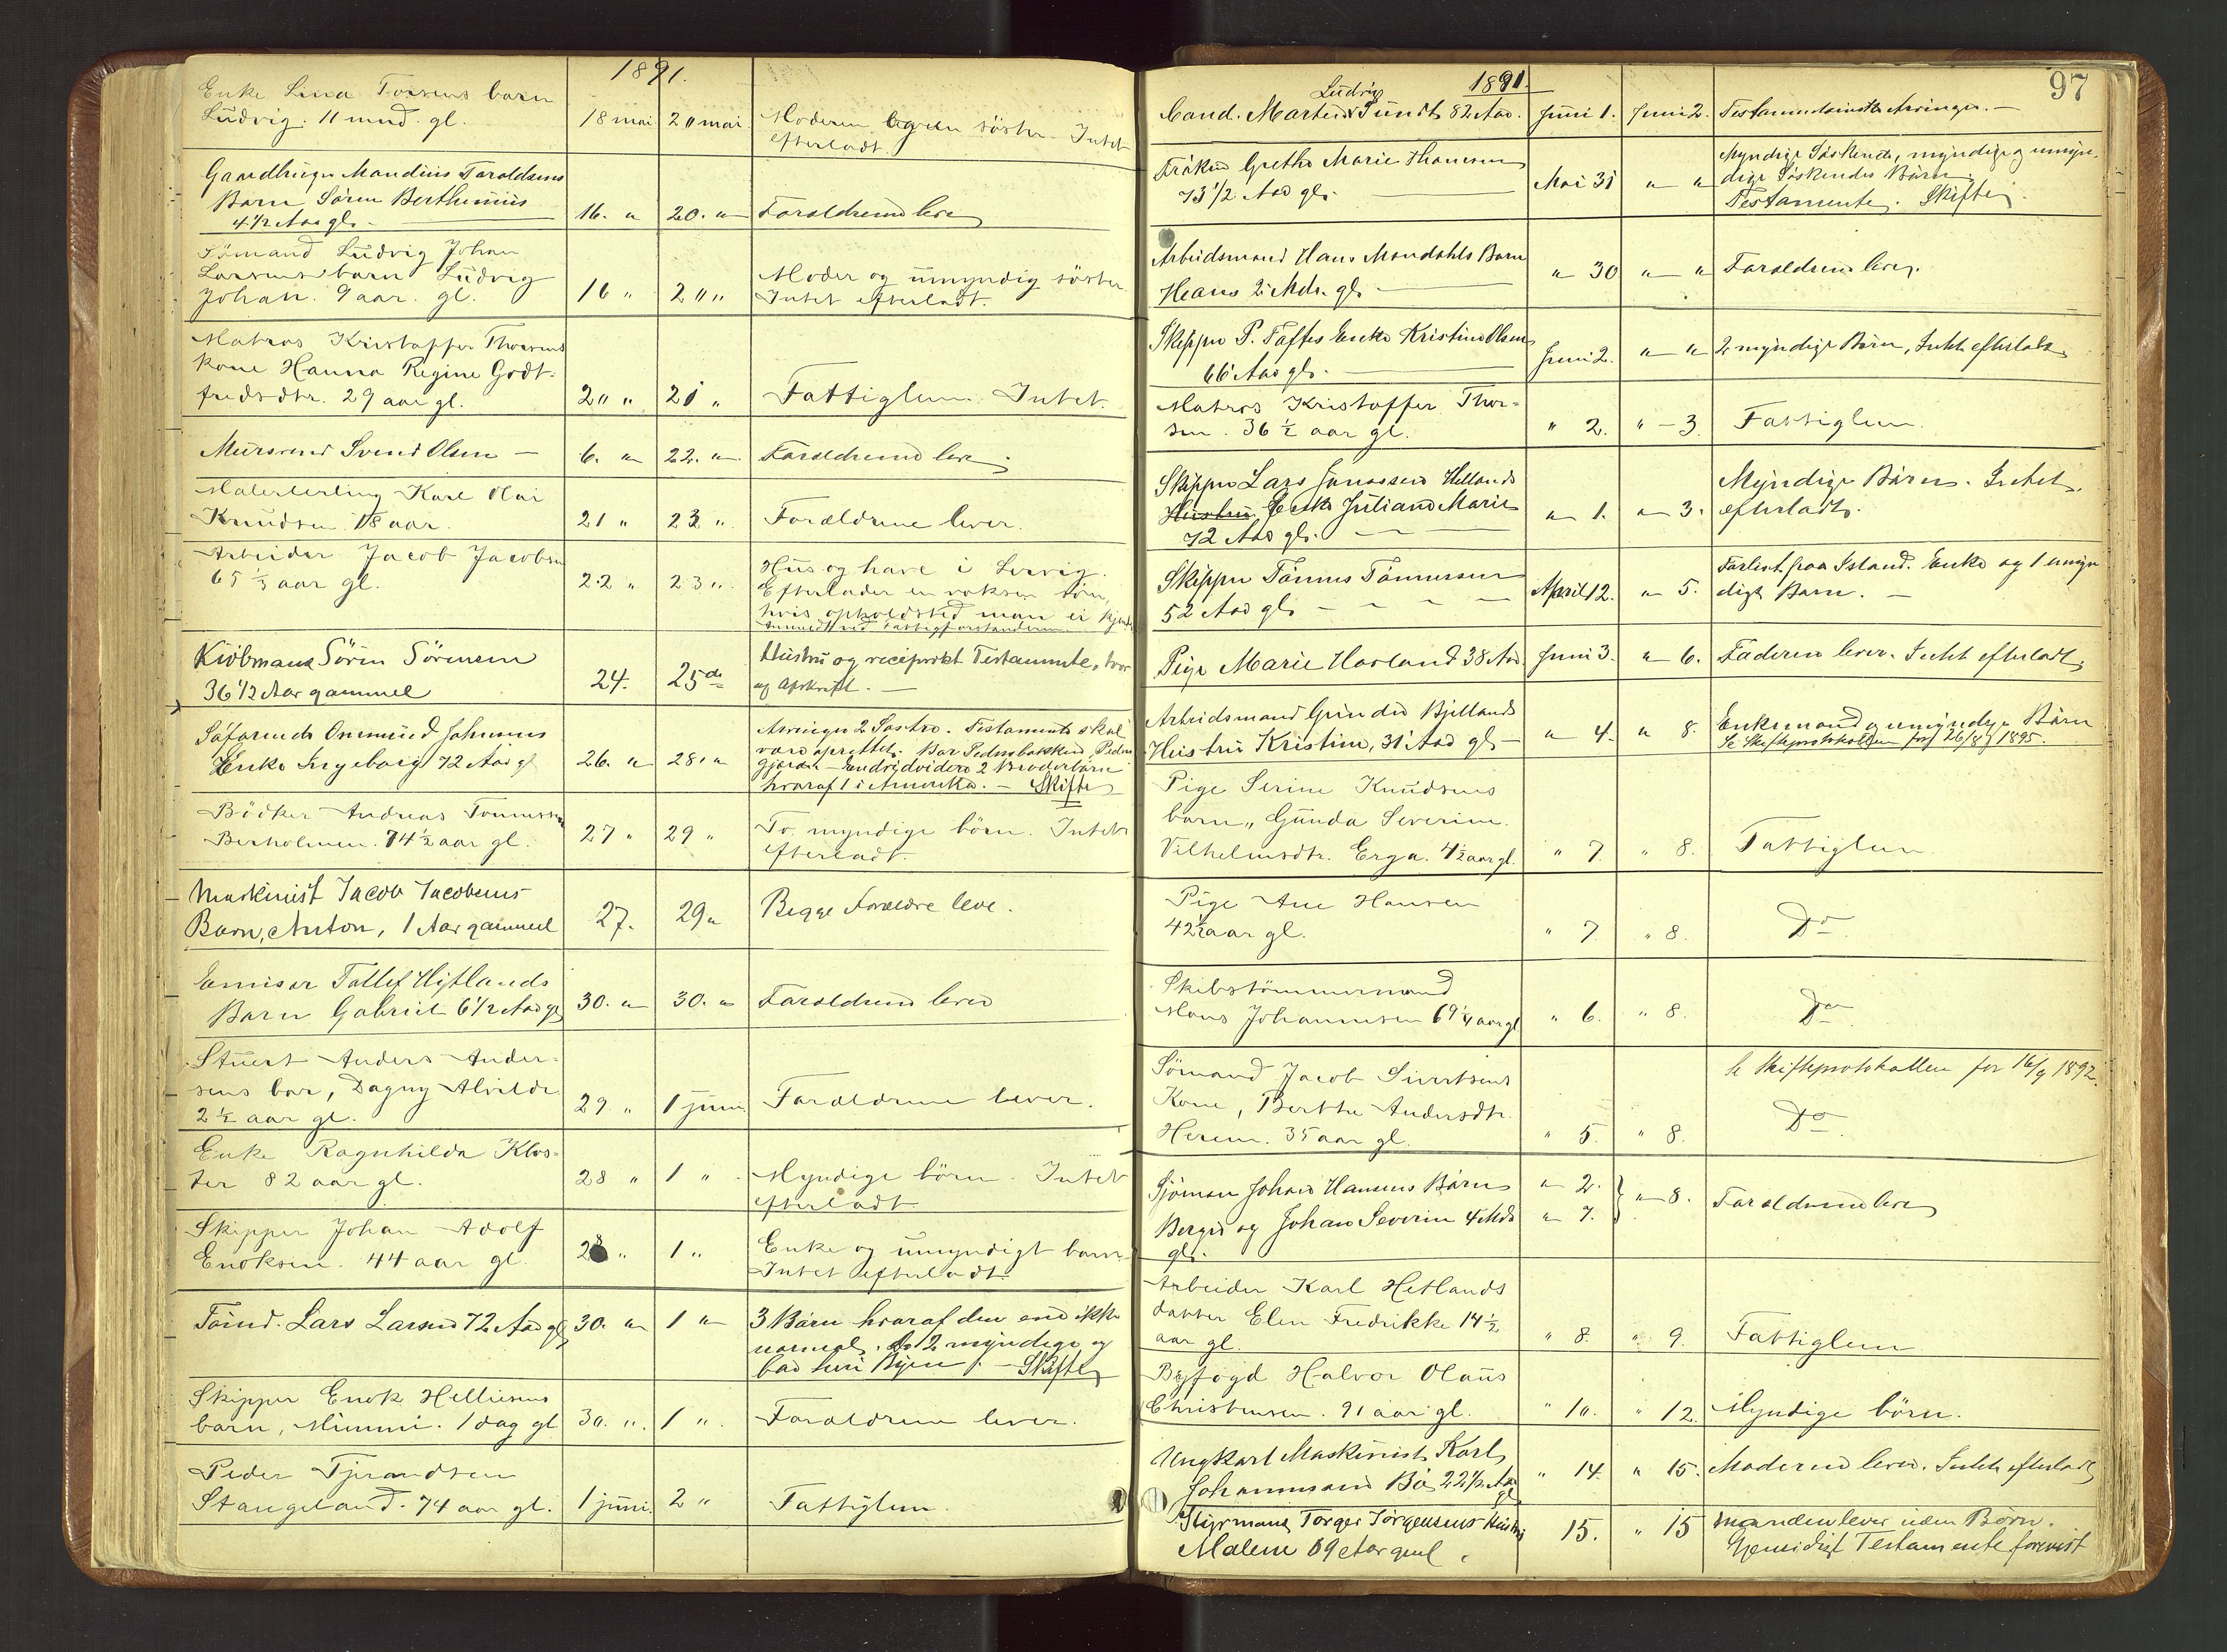 1891.
Enke Lina Torsens barn
Ludvig. 11 mnd. gl. 18 mai 20 mai Moderen og en söster. Intet
efterladt.
Gaardbruger Mandius Taraldsens
Barn Sören Berthinius
4 1/2 Aar gl. 16. " 20. " Forældrene lever
Sömand Ludvig Johan
Larsens barn Ludvig
Johan. 9 aar. gl. 16 " 20 " Moder og umyndig söster.
Intet efterladt.
Matros Kristoffer Thorsens
kone Hanna Regine Godt-
fredsdtr. 29 aar gl. 20 " 21 " Fattiglem. Intet.
Mursvend Svend Olsen — 6. " 22. " Forældrene lever
Malerlærling Karl Olai
Knudsen. 18 aar. 21 " 23 " Forældrene lever.
Arbeider Jacob Jacobsen
65 1/3 aar gl. 22 " 23 " Hus og have i Lervig.
Efterlader en voksen sön,
hvis opholdsted man ei kjender
anmeldt ved Fattigforstanderen
Kiöbmand Sören Sörensen
36 1/2 Aar gammel 24. 25de Hustru og reciprokt Testamente, hvor
og Afskrift. —
Söfarende Onemund Johnsens
Enke Ingeborg 72 Aar gl 26. " 28. " Arvinger 2 Söstre. Testamente skal
være oprettet. Bor Pedersbakken, Peders
gjærdet — Endvidere 2 Broderbörn
hvoraf 1 i Amerika. — Skifte
Bödker Andreas Tönnesen
Berholmen. 74 1/2 aar gl. 27 " 29 " To. myndige börn. Intet
efterladt.
Maskinist Jacob Jacobsens
Barn, Anton, 1 Aar gammel 27. 29 " Begge Forældre leve.
Emisær Tollef Hytlands
Barn Gabriel 6 1/2 Aar gl 30. " 30. " Forældrene lever
Stuert Anders Ander-
sens bar, Dagny Alvilde
2 1/2 aar gl. 29 " 1 juni Forældrene lever.
Enke Ragnhilda Klos-
ter 82 aar gl. 28 " 1 " Myndige börn. Intet
efterladt
Skipper Johan Adolf
Enoksen. 44 aar gl. 28 " 1 " Enke og umyndigt barn
Intet efterladt.
Tömd. Lars Larsen 72 Aar gl 30. " 1 " 3 Börn hvoraf den ene ikke
normal. De 2 myndige og
bad havi Byen. — Skifte
Skipper Enok Helliesens
barn, Mimmi. 1 dag gl 30. " 1 " Forældrene lever.
Peder Tjerandsen
Stangeland. 74 aar gl. 1 juni. 2 " Fattiglem.
97
1891.
Ludvig
Cand. Martin Sundt 82 Aar. Juni 1. Juni 2. Testamentariske Arvinger. —
Fröken Grethe Marie Hansen
73 1/2 Aar gl. Mai 31 " " Myndige Söskende, myndige og umyn-
dige Söskendes Börn.
Testamente. Skifte.
Arbeidsmand Hans Mondahls Barn
Hans 2 Mdr. gl. " 30 " " Forældrene lever.
Skipper P. Taftes Enke Kristine Olsen
66 Aar gl. Juni 2. " " 2 myndige Börn, Intet efterladt
Matros Kristoffer Thor-
sen. 36 1/2 aar gl. " 2. " - 3. Fattiglem.
Skipper Lars Jonassen Hellands
Hustru Enke Juliane Marie
72 Aar gl. " 1. " 3. Myndige Börn. Intet
efterladt.
Skipper Tönnes Tönnessen
52 Aar gl. April 12. " 5. Forlist paa Island. Enke og 1 umyn
digt Barn. —
Pige Marie Havland 38 Aar Juni 3. " 6. Faderen lever. Intet efterladt.
Arbeidsmand Gunder Bjellands
Hustru Kristine, 31 Aar gl. " 4. " 8. Enkemand og umyndige Börn
Se Skifteprotokollen for 26/8 1895.
Pige Serine Knudsens
barn, Gunda Severine
Vilhelmsdtr. Erga. 4 1/2 aar gl. " 7. " 8. Fattiglem
Pige Ane Hansen
42 1/2 aar gl. " 7. " 8. Do
Skibstömmermand
Mons Johannesen 69 1/4 aar gl " 6. " 8. Do
Sömand Jacob Sivertsens
Kone, Berthe Andersdtr.
Herem. 35 aar gl. " 5. " 8. Se Skifteprotokollen for 16/9 1892.
Do
Sjömann Johan Hansens Börn " 2.
Berges og Johan Severin 4 Mdr " 7. " 8. Forældrene lever
gl.
Arbeider Karl Hetlands
datter Elen Fredrikke 14 1/2
aar gl. " 8. " 9. Fattiglem
Byfogd Halvor Olaus
Christensen. 91 aar gl. " 10. " 12. Myndige börn.
Ungkarl Maskinist Karl
Johannesen Bö 22 1/2 Aar
gl " 14. " 15. Moderen lever. Intet efterladt
Styrmand Torger Jörgensens Hustru
Malene 69 Aar gml. 15. " 15 Manden lever uden Börn.
Gjensidigt Testamente forevist